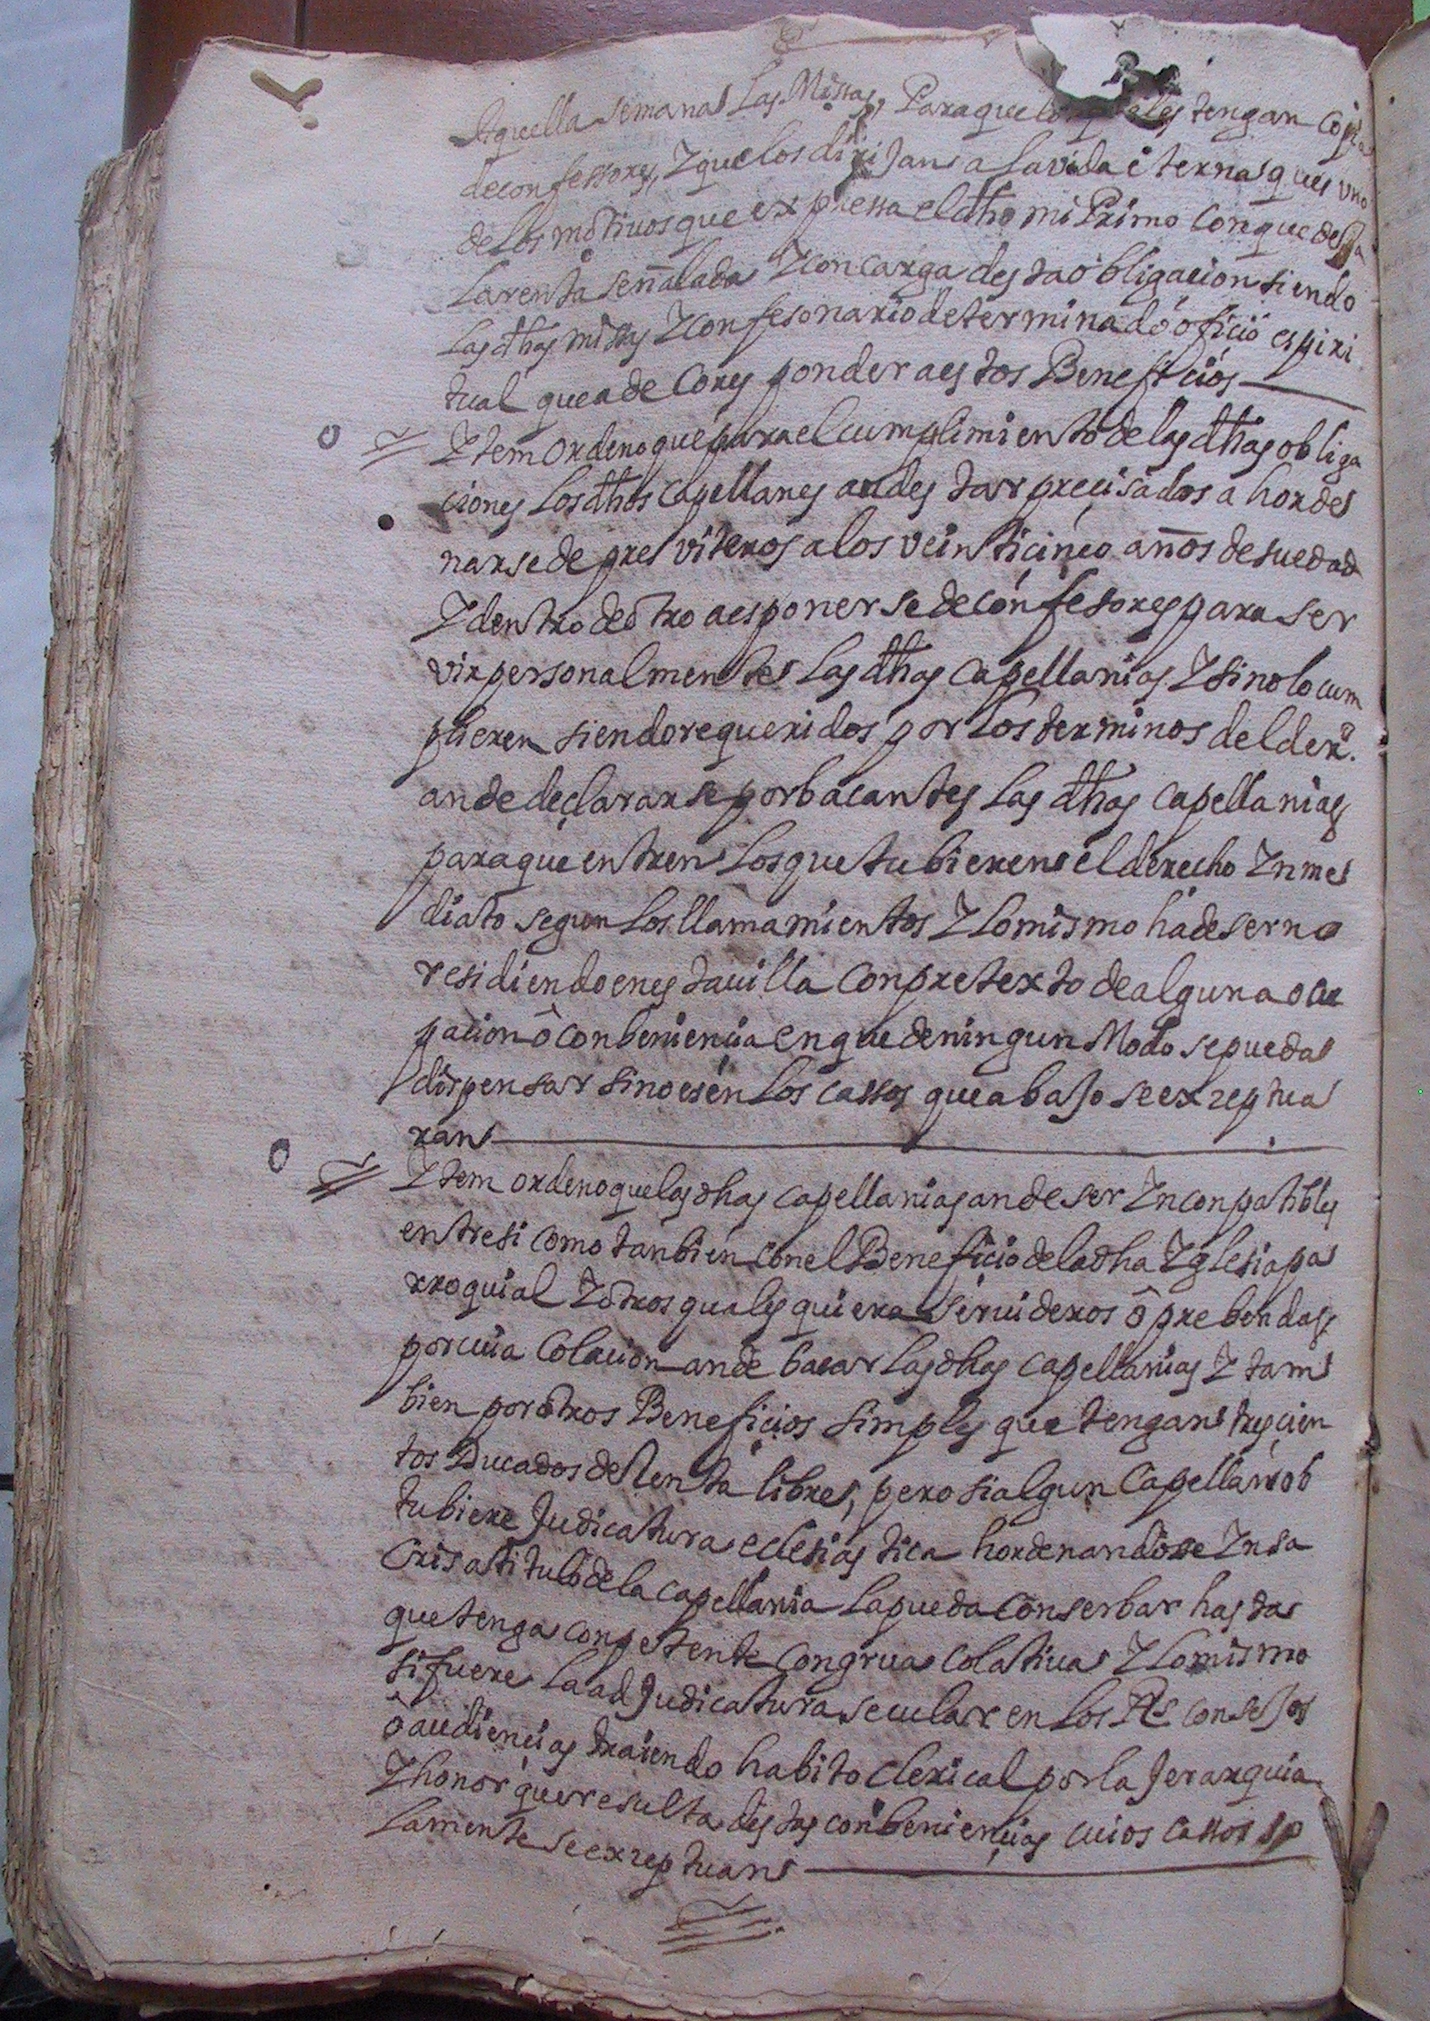 Aquella semana las Missas, Para que los tengan copia
de confessores, Y que los dirijan a la vida eterna ques uno
de los motiuos que expressa el dho mi Primo con que dexa
la renta señalada Y con carga desta obligacion siendo
las dhas missas Y confesonario determinado oficio espiri
tual que a de Corresponder a estos Beneficios
Ytem ordeno que para el cumplimiento de las dhas obliga
ciones los dhos capellanes an de star precisados a horde
narse de presviteros a los veinticinco años de su edad
Y dentro de otro a esponerse de confesores para ser
vir personalmente las dhas capellanias Y si no lo cum
plieren siendo requeridos por los terminos del derº.
an de declararse por bacantes las dhas capellanias
para que entren los que tubieren el derecho Ynme
diato segun los llamamientos Y lo mismo ha de ser no
residiendo en esta uilla con pretexto de alguna ocu
pacion ô conbeniencia en que de ningun Modo se pueda
dispensar sino es en los cassos que abajo se exzeptua
ran
Ytem ordeno que las dhas capellanias an de ser Ynconpatibles
entre si como tanbien con el Beneficio de la dha Yglesia pa
rroquial Y otros quales quiera seruideros ô prebendas
por cuia Colacion an de bacar las dhas capellanias Y tam
bien por otros Beneficios simples que tengan trescien
tos Ducados de Renta libre, pero si algun Capellan ob
tubiere Judicatura eclesiastica hordenandose Ynsa
cris a titulo de la capellania la pueda conserbar hasta
que tenga conpetente congrua colatiua Y lo mismo
si fuere la adJudicatura secular en los Rs consejos
ô audiencias traiendo habito clerical por la Jerarquia
Y honor que resulta destas conbeniencias cuios cassos so
lamente se exzeptuan